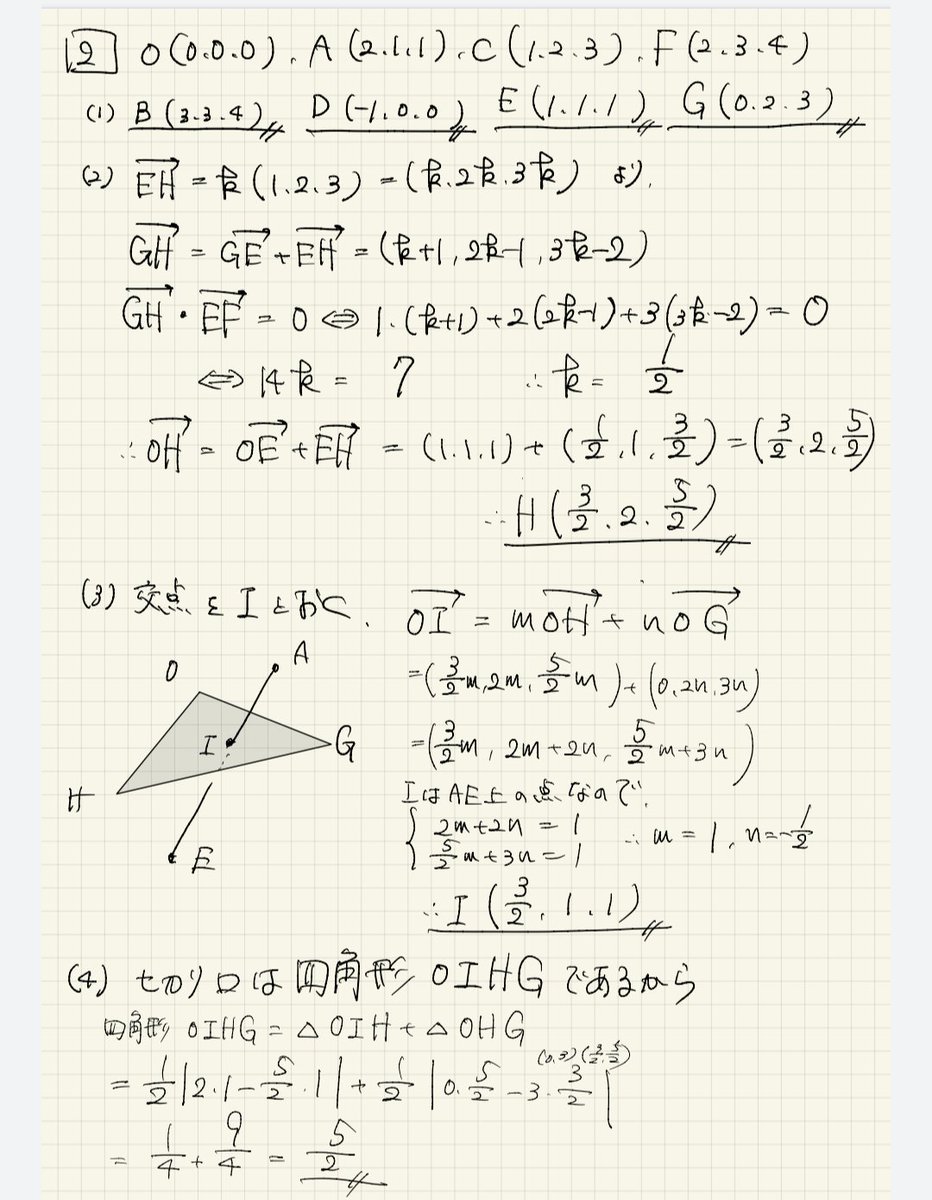 [2] O(0.0.0), A(2.1.1), C(1.2.3), F(2.3.4)
(1) B(3.3.4) D(-1.0.0) E(1.1.1) G(0.2.3)
(2) →EH = k(1.2.3) = (k.2k.3k) より,
→GH = →GE + →EH = (k+1, 2k-1, 3k-2)
→GH・→EF = 0 ⇔ 1・(k+1)+2(2k-1)+3(3k-2)= 0
⇔ 14k = 7 ∴ k = 1/2
∴ →OH = →OE + →EH = (1.1.1) + (1/2, 1, 3/2) = (3/2, 2, 5/2)
∴ H(3/2. 2. 5/2)
(3) 交点を I とおく, →OI = m→OH + n→OG
=(3/2m, 2m, 5/2m) + (0, 2n, 3n)
=(3/2m, 2m+2n, 5/2m+3n)
IはAE上の点なので,
{ 2m+2n = 1
5/2m+3n = 1 ∴ m = 1, n=-1/2
∴ I(3/2, 1, 1)
O
A
I
G
H
E
(4) セツ口は四角形 OIHG であるから
四角形 OIHG = △OIH + △OHG
(0.3)(3/2.5/2)
= 1/2|2・1-5/2・1| + 1/2|0・5/2-3・3/2|
= 1/4 + 9/4 = 5/2